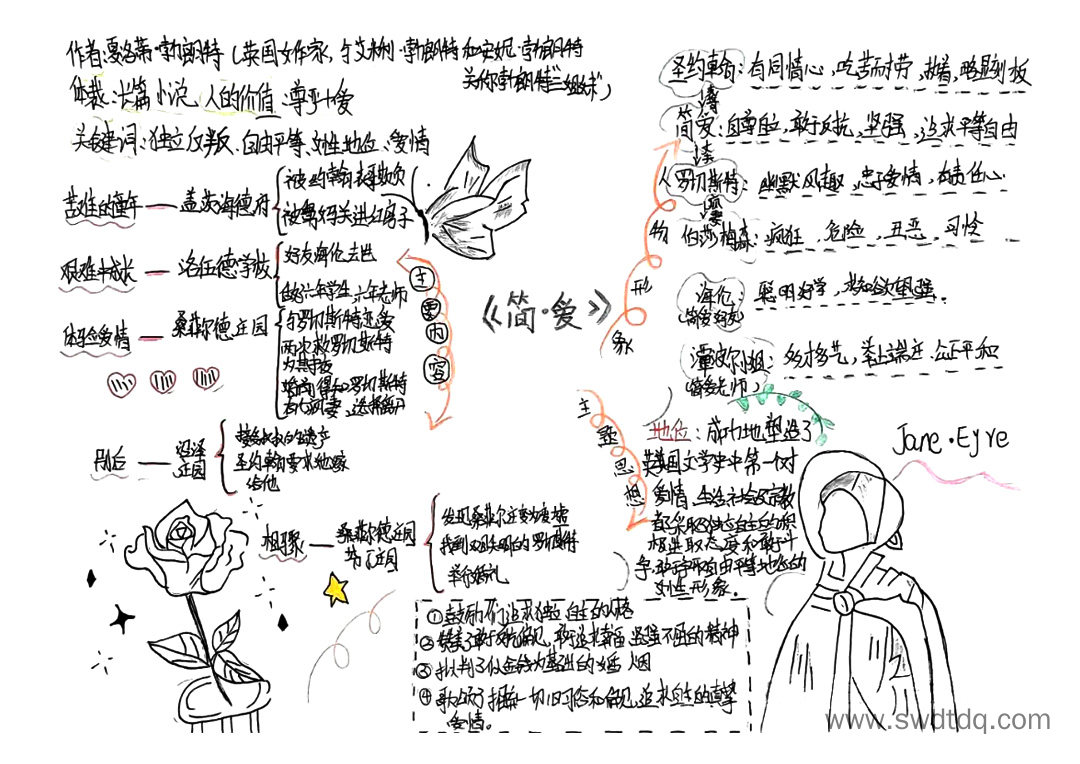 作者:夏洛蒂·勃朗特(英国女作家,与艾米利·勃朗特和安妮·勃朗特
关你勃朗特三姐妹)
体裁:长篇小说 人的价值:尊严+爱
关键词:独立反叛、自由平等、女性地位:爱情
苦难的童年 — 盖茨海德府
被约翰表哥欺负
被舅妈关进红房子
艰难中成长 — 洛伍德学校
好友海伦去世
六年学生,六年老师
体验爱情 — 桑菲尔德庄园
与罗切斯特恋爱
两次救罗切斯特
婚前得知罗切斯特
有个疯妻,选择离开
别后 — 沼泽庄园
叔叔的遗产
圣约翰要求她嫁
给他
相聚 — 桑菲尔德庄园
芬丁庄园
发现桑菲尔庄变为废墟
找到双目失明的罗切斯特
举行婚礼
主要内容
《简·爱》
人物形象
圣约翰:有同情心,吃苦耐劳,执着,略显刻板
简爱:自尊自立,敢于反抗,坚强,追求平等自由
罗切斯特:幽默风趣,忠于爱情,有责任心
伯莎梅森:疯狂,危险,丑恶,可怜
海伦:聪明好学,求知欲望强。
(简爱好友)
潭波尔小姐:多才多艺,举止端庄.公正平和
(简爱老师)
主要思想
地位:成功地塑造了
英国文学史中第一个对
爱情、生活、社会及宗教
都采取独立自主的积
极进取态度和敢于斗
争,敢于争取自由平等地位的
女性形象。
Jane·Eyre
①鼓励人们追求独立自主的人格
②赞美了敢于对抗偏见,敢于追求幸福 坚强不屈的精神
③批判了以金钱为基础的婚姻
④歌颂了摆脱一切旧习俗和偏见,追求自主的真挚
爱情。
www.swdtdq.com